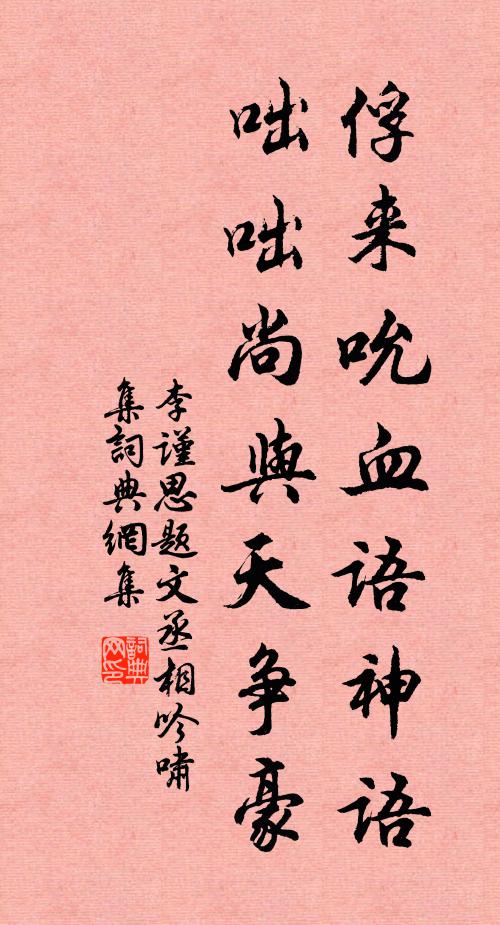 俘来吮血语神语
咄咄尚与天争豪
李谨思题文丞相吟啸
集词典网集
词典网印